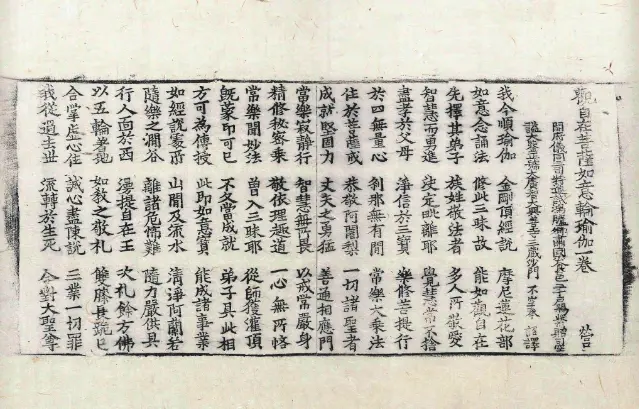 觀自在菩薩如意輪瑜伽一卷 營
開府儀同三司特進試鴻臚卿肅國公食邑三千戶賜紫贈司空
謚大鑒正號大廣智大興善寺三藏沙門 不空奉 詔譯
我今順瑜伽 金剛頂經說 摩尼蓮花部
如意念誦法 修此三昧故 能如觀自在
先擇其弟子 族姓敬法者 多人所敬愛
智慧而勇進 決定毗離耶 覺慧常不捨
盡孝於父母 淨信於三寶 樂修菩提行
於四無量心 剎那無有間 常樂大乘法
住於菩薩戒 恭敬阿闍梨 一切諸聖者
成就堅固力 丈夫之勇猛 善通相應門
當樂寂靜行 智慧無所畏 以戒常嚴身
精修秘密乘 敬依理趣道 一心無所悋
常樂聞妙法 曾入三昧耶 從師獲灌頂
既蒙印可已 不久當成就 弟子具此相
方可為傳授 此即如意寶 能成諸事業
如經說處所 山間及流水 清淨阿蘭若
隨樂之澗谷 離諸危怖難 隨力嚴供具
行人面於西 遙想自在王 次礼餘方佛
以五輪著地 如教之敬礼 雙膝長跪已
合掌虛心住 誠心盡陳說 三業一切罪
我從過去世 流轉於生死 今對大聖尊